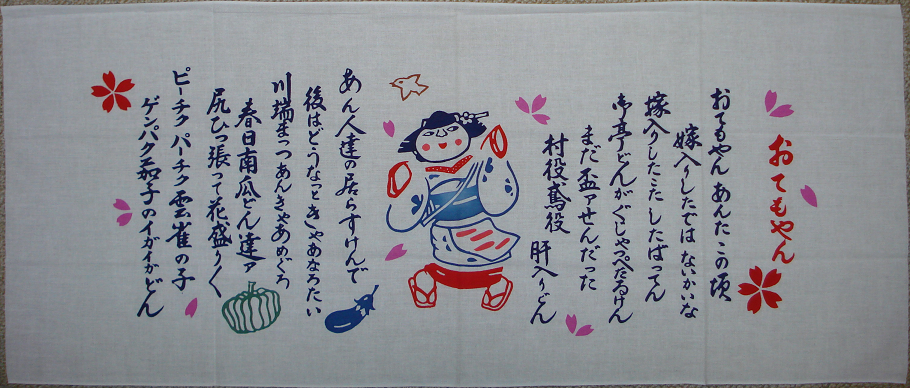 おてもやん
おてもやん あんたこの頃
嫁入りしたではないかいな
嫁入りしたこたしたばってん
御亭どんがぐじゃっぺだるけん
まだ盃ァせんだった
村役鳶役 肝入りどん
あん人達の居らすけんで
後はどうなっときゃあなろたい
川端まっつあんきゃあめぐろ
春日南瓜どん達ァ
尻ひっ張って花盛り〱
ピーチク パーチク 雲雀の子
ゲンパク茄子のイガイガどん